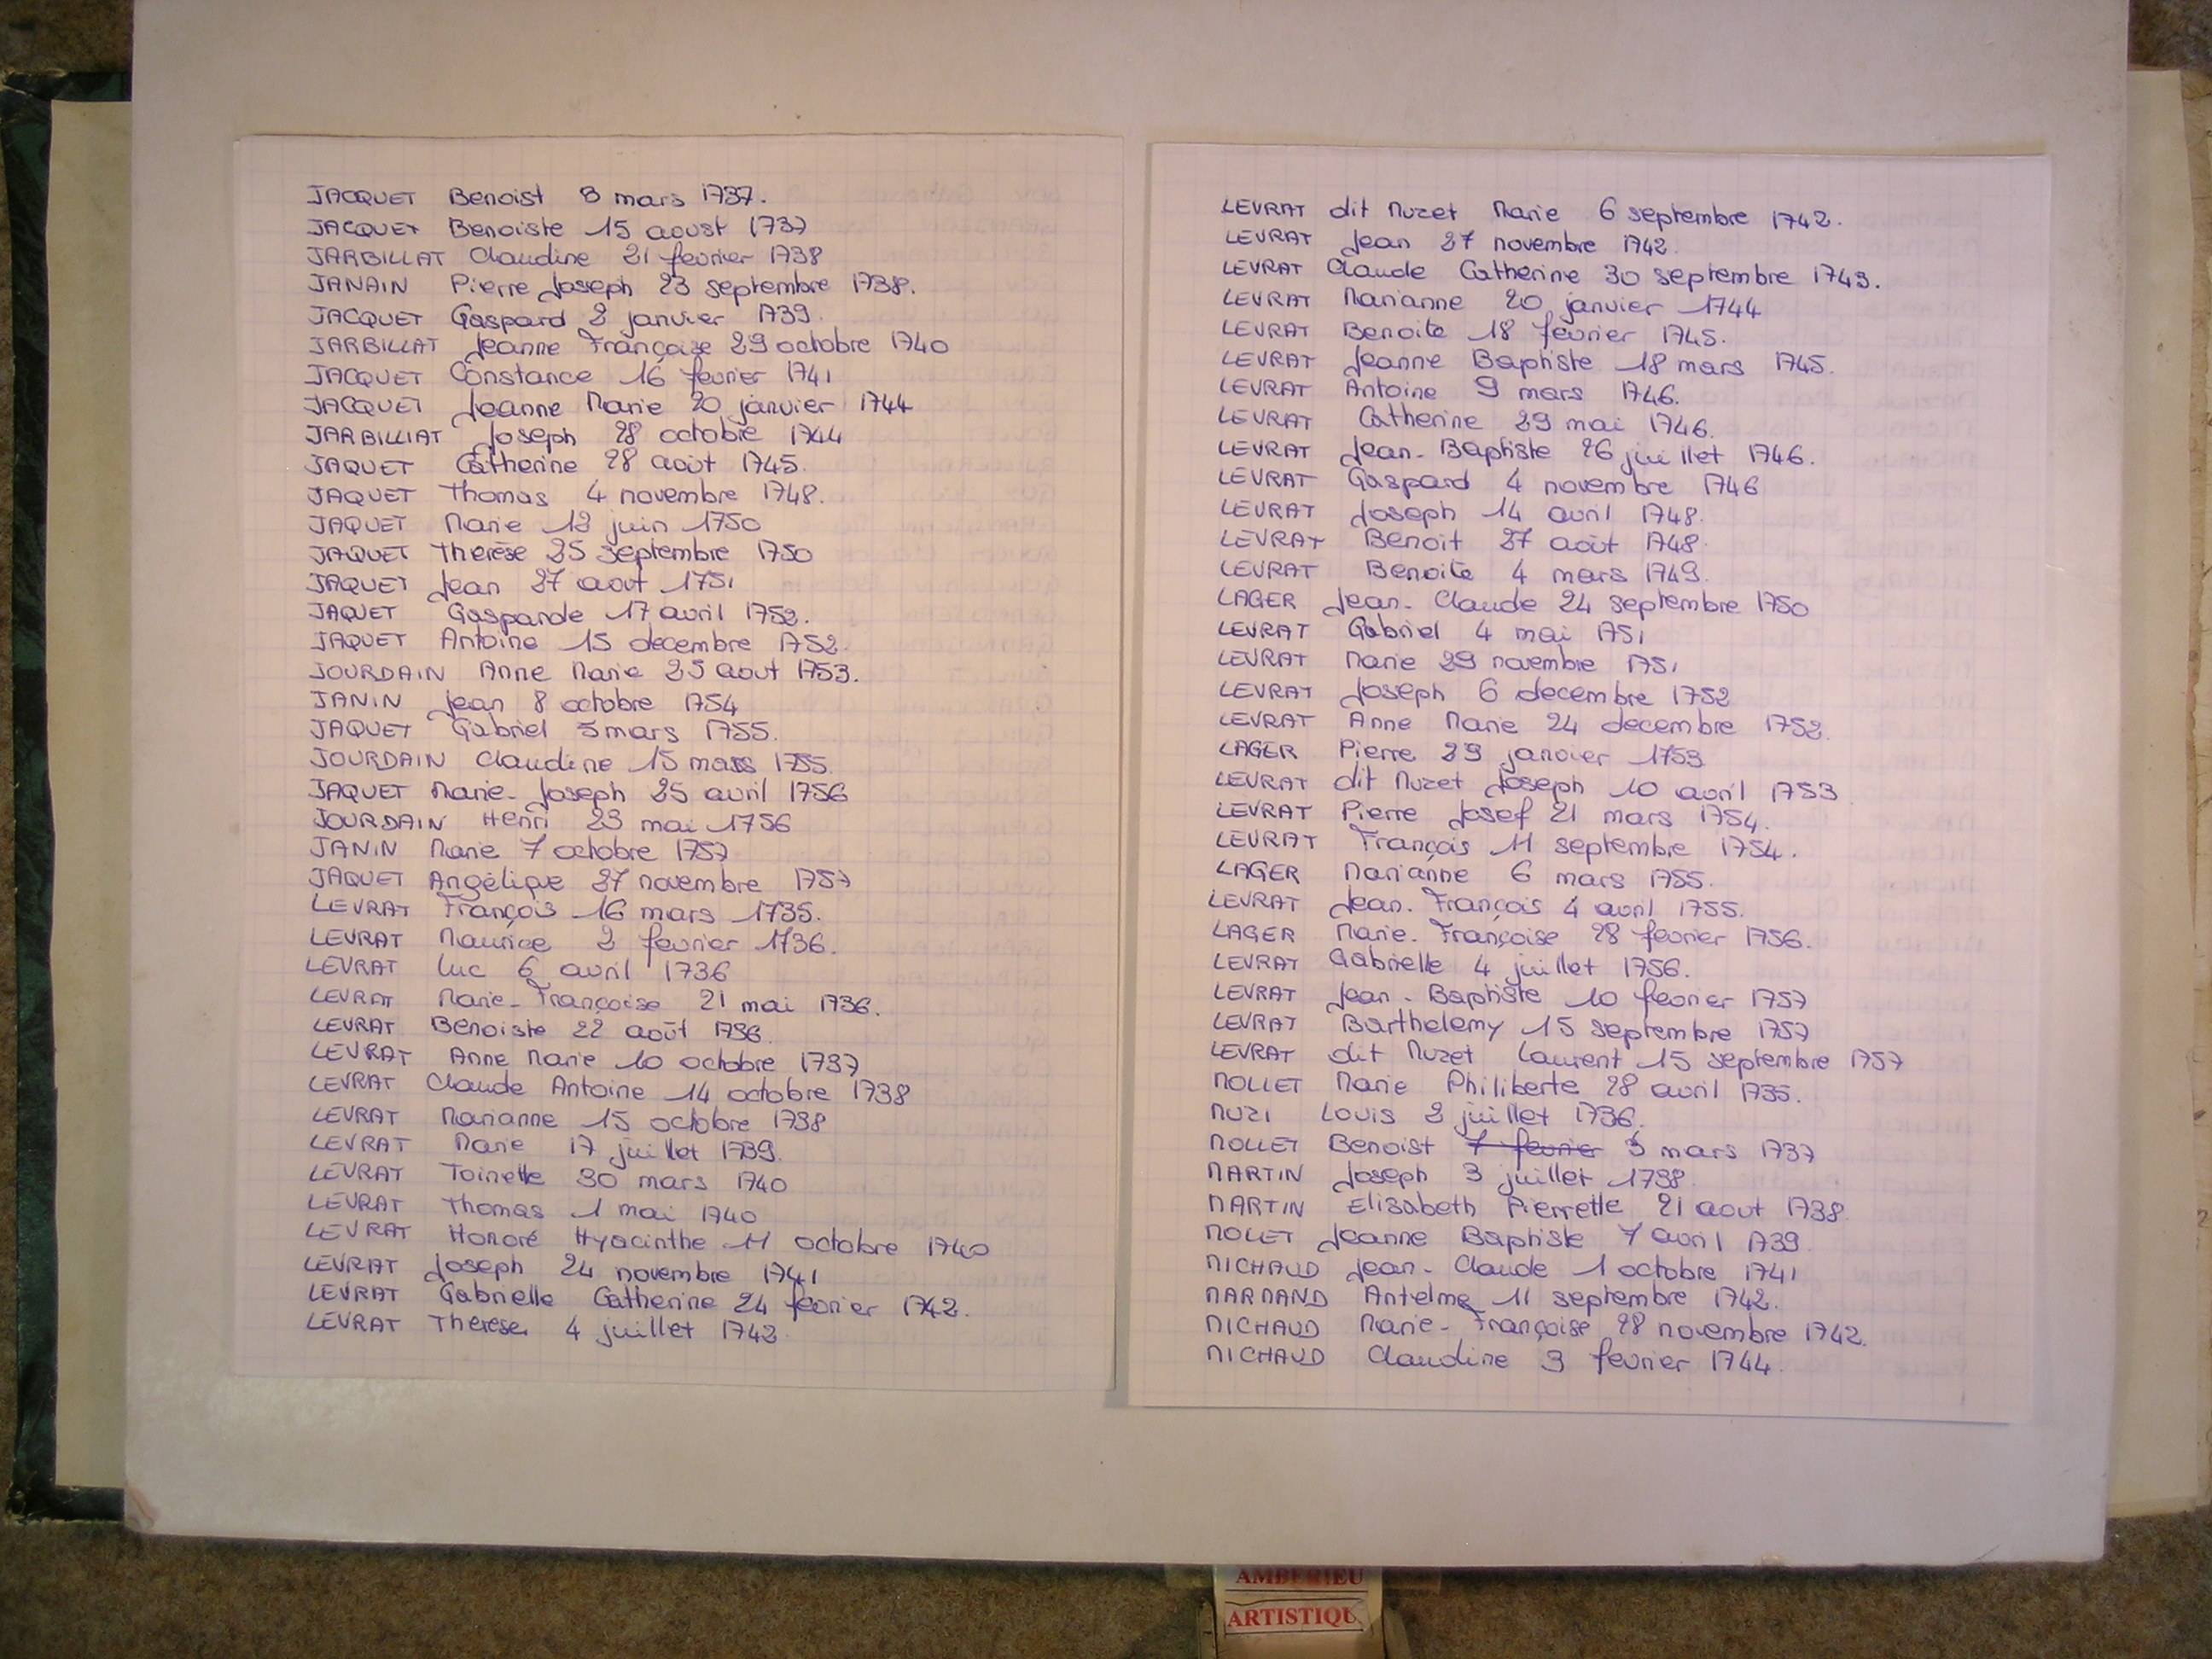 JACQUET Benoist 8 mars 1737.
JACQUET Benoiste 15 aoust 1737
JARBILLAT Claudine 21 fevrier 1738
JANAIN Pierre Joseph 23 septembre 1738.
JACQUET Gaspard 2 janvier 1739.
JARBILLAT Jeanne Françoise 29 octobre 1740
JACQUET Constance 16 fevrier 1741
JACQUET Jeanne Marie 20 janvier 1744
JARBILLIAT Joseph 28 octobre 1744
JAQUET Catherine 28 août 1745.
JAQUET Thomas 4 novembre 1748.
JAQUET Marie 12 juin 1750
JAQUET Therèse 25 septembre 1750
JAQUET Jean 27 aout 1751
JAQUET Gasparde 17 avril 1752.
JAQUET Antoine 15 decembre 1752.
JOURDAIN Anne Marie 25 aout 1753.
JANIN Jean 8 octobre 1754
JAQUET Gabriel 5 mars 1755.
JOURDAIN Claudine 15 mars 1755.
JAQUET Marie-Joseph 25 avril 1756
JOURDAIN Henri 23 mai 1756
JANIN Marie 7 octobre 1757
JAQUET Angélique 27 novembre 1757
LEVRAT François 16 mars 1735.
LEVRAT Maurice 2 fevrier 1736.
LEVRAT Luc 6 avril 1736
LEVRAT Marie-Françoise 21 mai 1736.
LEVRAT Benoiste 22 août 1736.
LEVRAT Anne Marie 10 octobre 1737
LEVRAT Claude Antoine 14 octobre 1738
LEVRAT Marianne 15 octobre 1738
LEVRAT Marie 17 juillet 1739.
LEVRAT Toinette 30 mars 1740
LEVRAT Thomas 1 mai 1740
LEVRAT Honoré Hyacinthe 11 octobre 1740
LEVRAT Joseph 24 novembre 1741
LEVRAT Gabrielle Catherine 24 fevrier 1742.
LEVRAT Therese 4 juillet 1742.
LEVRAT dit Muzet Marie 6 septembre 1742.
LEVRAT Jean 27 novembre 1742.
LEVRAT Claude Catherine 30 septembre 1743.
LEVRAT Marianne 20 janvier 1744
LEVRAT Benoite 18 fevrier 1745.
LEVRAT Jeanne Baptiste 18 mars 1745.
LEVRAT Antoine 9 mars 1746.
LEVRAT Catherine 29 mai 1746.
LEVRAT Jean-Baptiste 26 juillet 1746.
LEVRAT Gaspard 4 novembre 1746
LEVRAT Joseph 14 avril 1748.
LEVRAT Benoit 27 août 1748.
LEVRAT Benoite 4 mars 1749.
LAGER Jean-Claude 24 septembre 1750
LEVRAT Gabriel 4 mai 1751
LEVRAT Marie 29 novembre 1751
LEVRAT Joseph 6 decembre 1752
LEVRAT Anne Marie 24 decembre 1752.
LAGER Pierre 29 janvier 1753
LEVRAT dit Muzet Joseph 10 avril 1753
LEVRAT Pierre Josef 21 mars 1754.
LEVRAT François 11 septembre 1754.
LAGER Marianne 6 mars 1755.
LEVRAT Jean-François 4 avril 1755.
LAGER Marie-Françoise 28 fevrier 1756.
LEVRAT Gabrielle 4 juillet 1756.
LEVRAT Jean-Baptiste 10 fevrier 1757
LEVRAT Barthelemy 15 septembre 1757
LEVRAT dit Muzet Laurent 15 septembre 1757
MOLLET Marie Philiberte 28 avril 1735.
MUZI Louis 2 juillet 1736.
MOLLET Benoist 7 fevrier 3 mars 1737
MARTIN Joseph 3 juillet 1738.
MARTIN Elisabeth Pierrette 21 aout 1738
MOLET Jeanne Baptiste 7 avril 1739.
MICHAUD Jean-Claude 1 octobre 1741
MARMAND Antelme 11 septembre 1742.
MICHAUD Marie-Françoise 28 novembre 1742.
MICHAUD Claudine 3 fevrier 1744.
AMBERIEU
ARTISTIQU